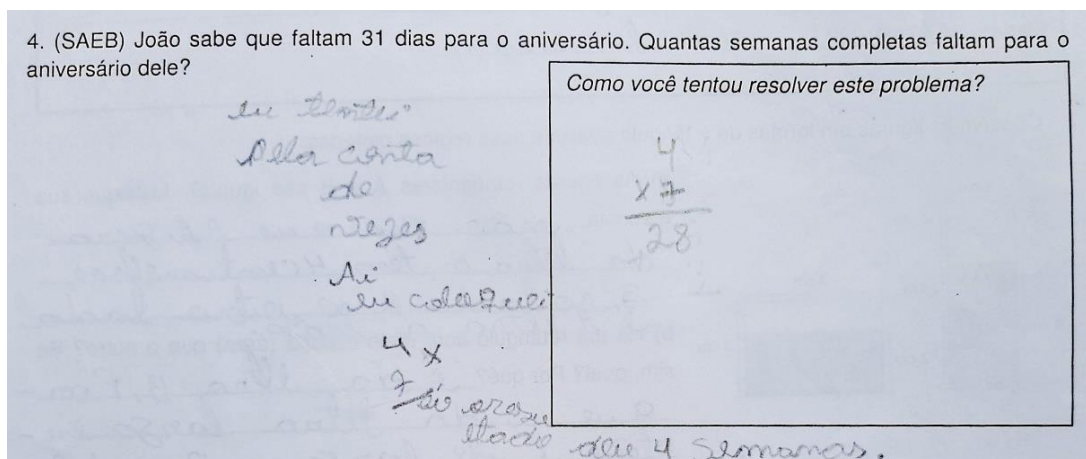 4. (SAEB) João sabe que faltam 31 dias para o aniversário. Quantas semanas completas faltam para o
aniversário dele?
eu tentei
Pela conta
de
vezes
Ai
eu coloquei
4 x
7
ai oresu
ltado deu 4 semanas.
Como você tentou resolver este problema?
4
x 7
28